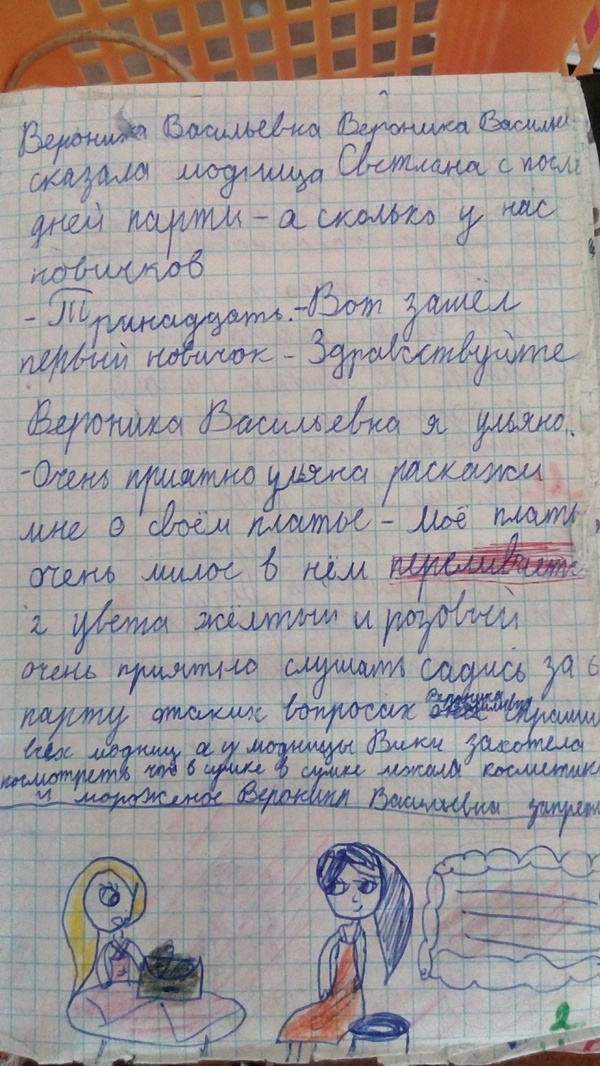 Вероника Васильевна Вероника Василье
сказала модница Светлана с после
дней парты - а сколько у нас
новичков
- Тринаддать. - Вот зашёл
первый новичок - Здравствуйте
Вероника Васильевна я ульяна.
- Очень приятно ульяна раскажи
мне о своём платье - Моё плать
очень милое в нём переливаетс
2 цвета жёлтый и розовый
очень приятно слушать садись за 6
парту отаких вопросах Вероника спраши
Васильевна
всех модниц а у модницы Вики захотела
посмотреть что в сумке в сумке лежала косметика
и мороженое Вероника Васильевна запрет
2